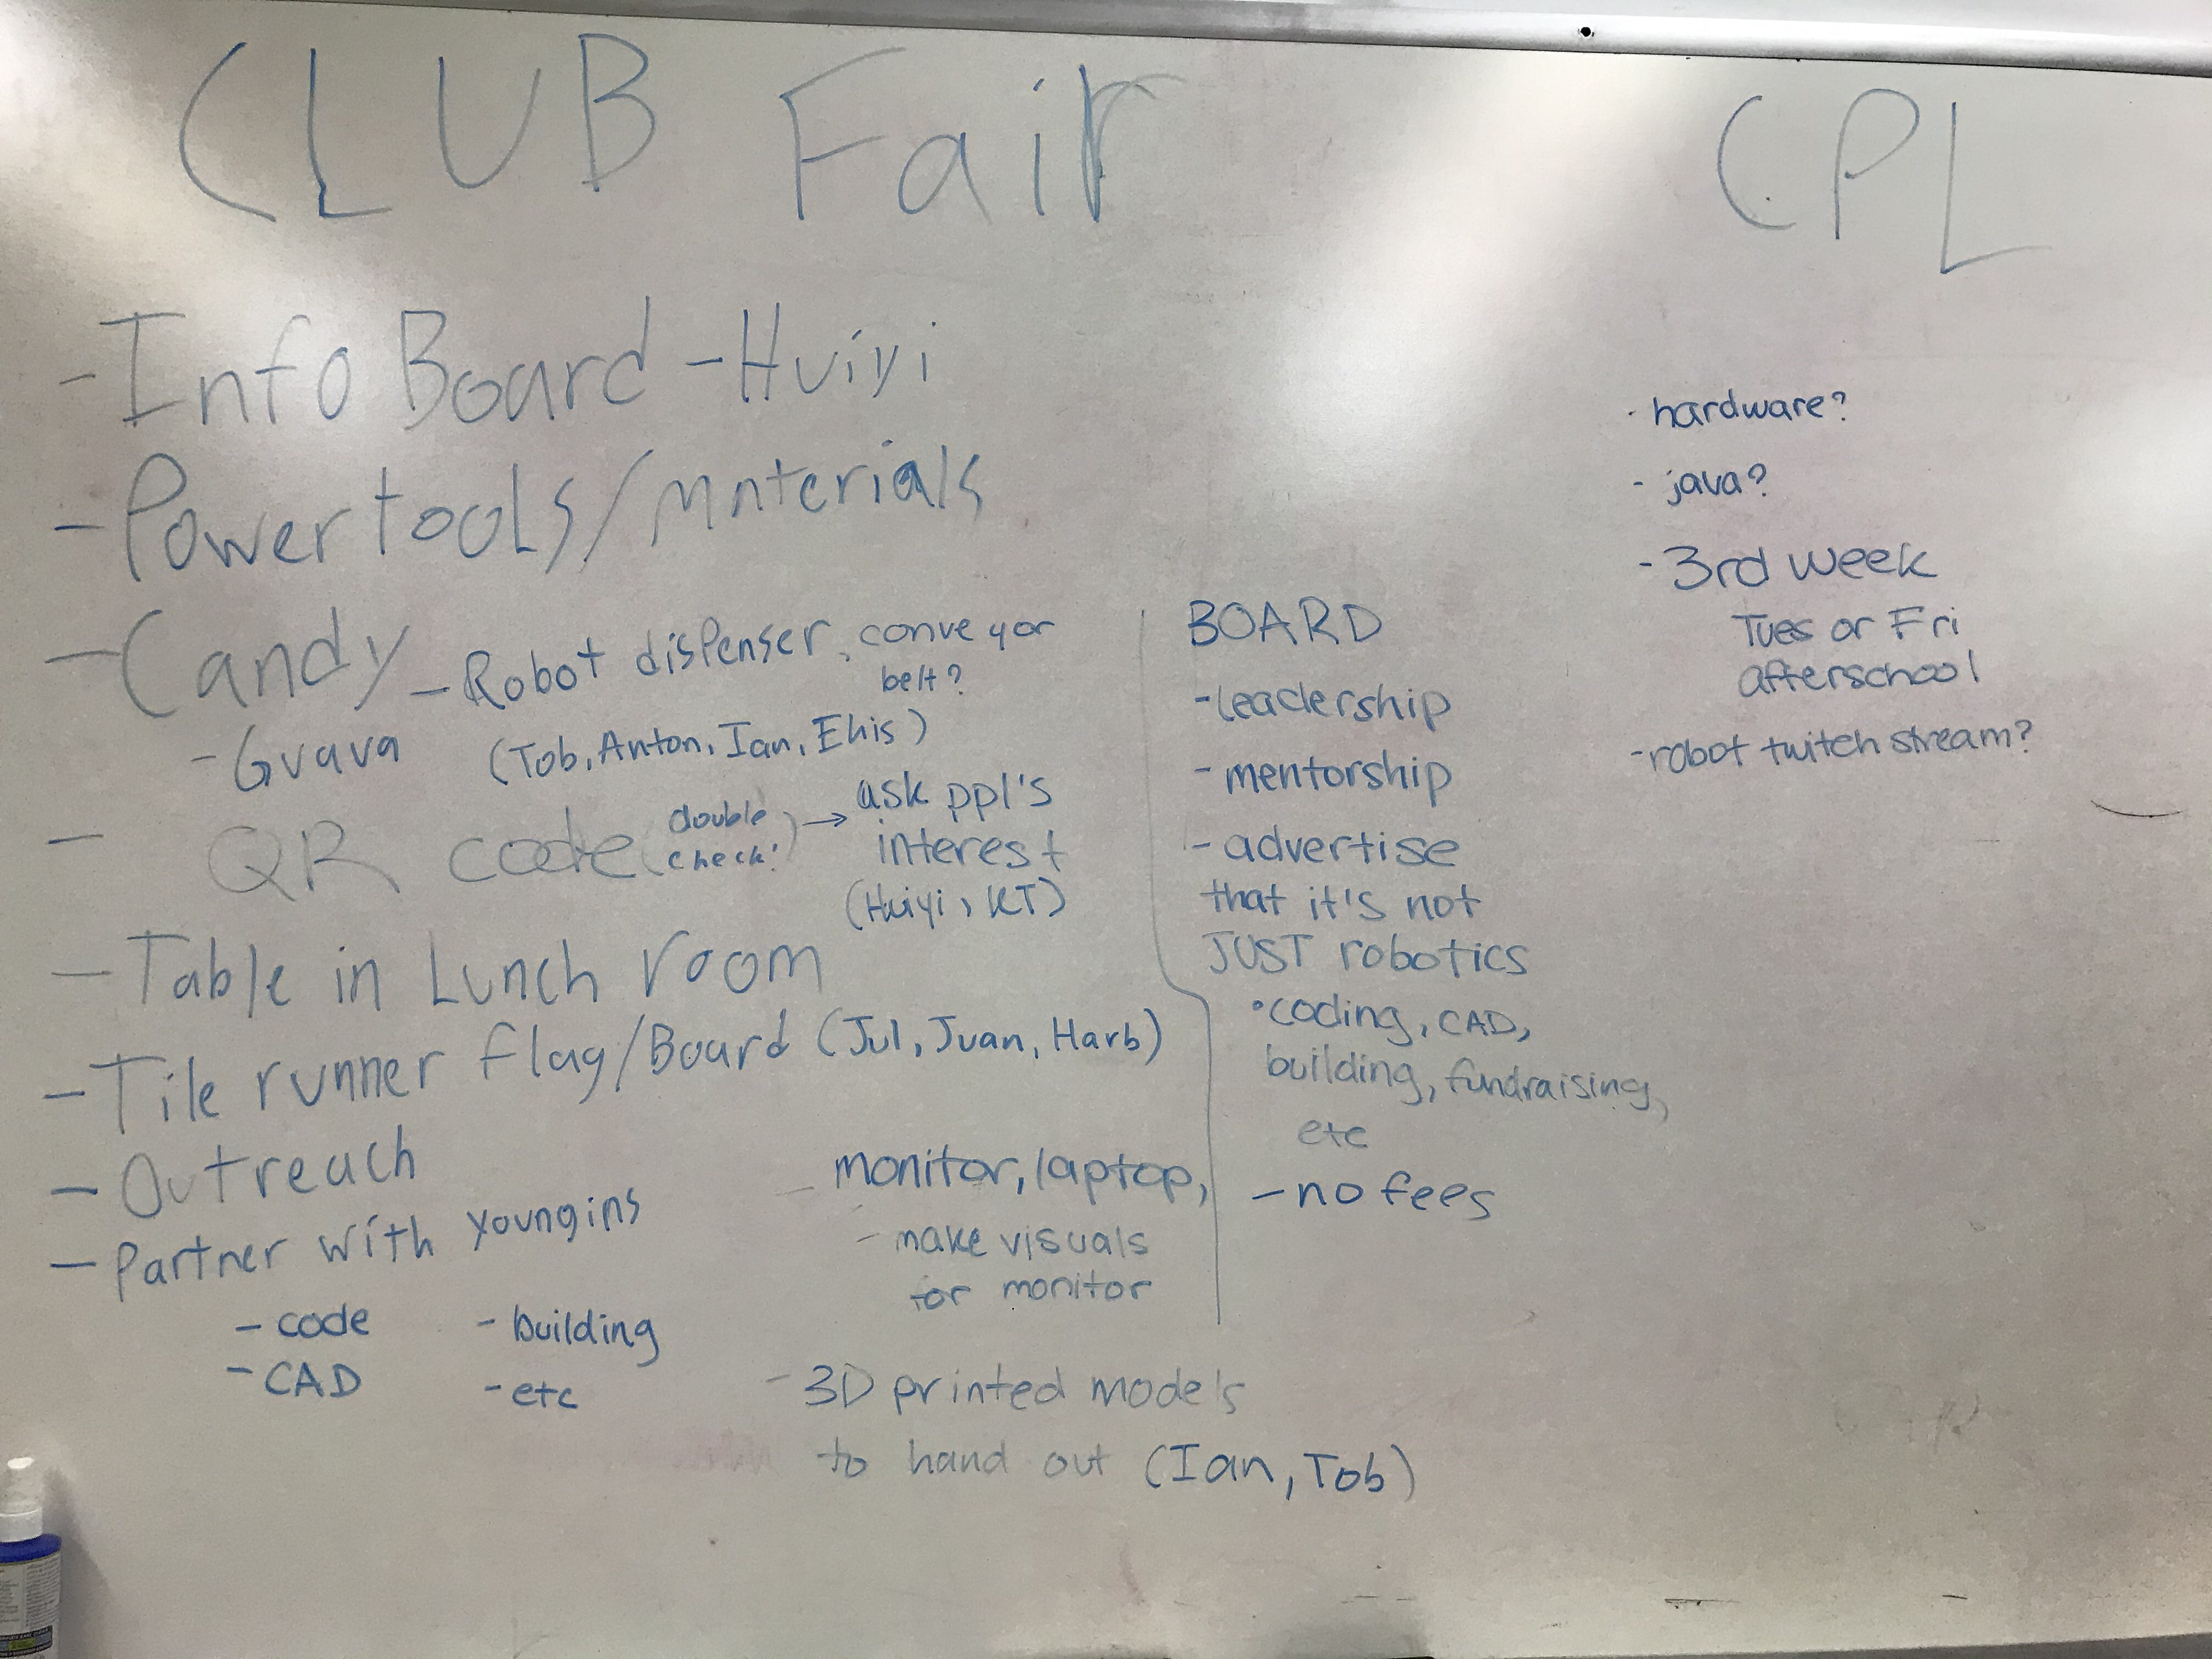 CLUB Fair
- Info Board - Huiyi
- Power tools/Materials
- Candy - Robot dispenser, conveyor
belt?
- Guava (Tob, Anton, Ian, Ehis)
- QR code (double check!) → ask ppl's
interest
(Huiyi, KT)
- Table in Lunch room
- Tile runner flag/Board (Jul, Juan, Harb)
- Outreach
- Partner with youngins
- code - building
- CAD - etc
- monitor, laptop,
- make visuals
for monitor
- 3D printed models
to hand out (Ian, Tob)
BOARD
- leadership
- mentorship
- advertise
that it's not
JUST robotics
• coding, CAD,
building, fundraising,
etc
- no fees
CPL
- hardware?
- java?
- 3rd week
Tues or Fri
afterschool
- robot twitch stream?